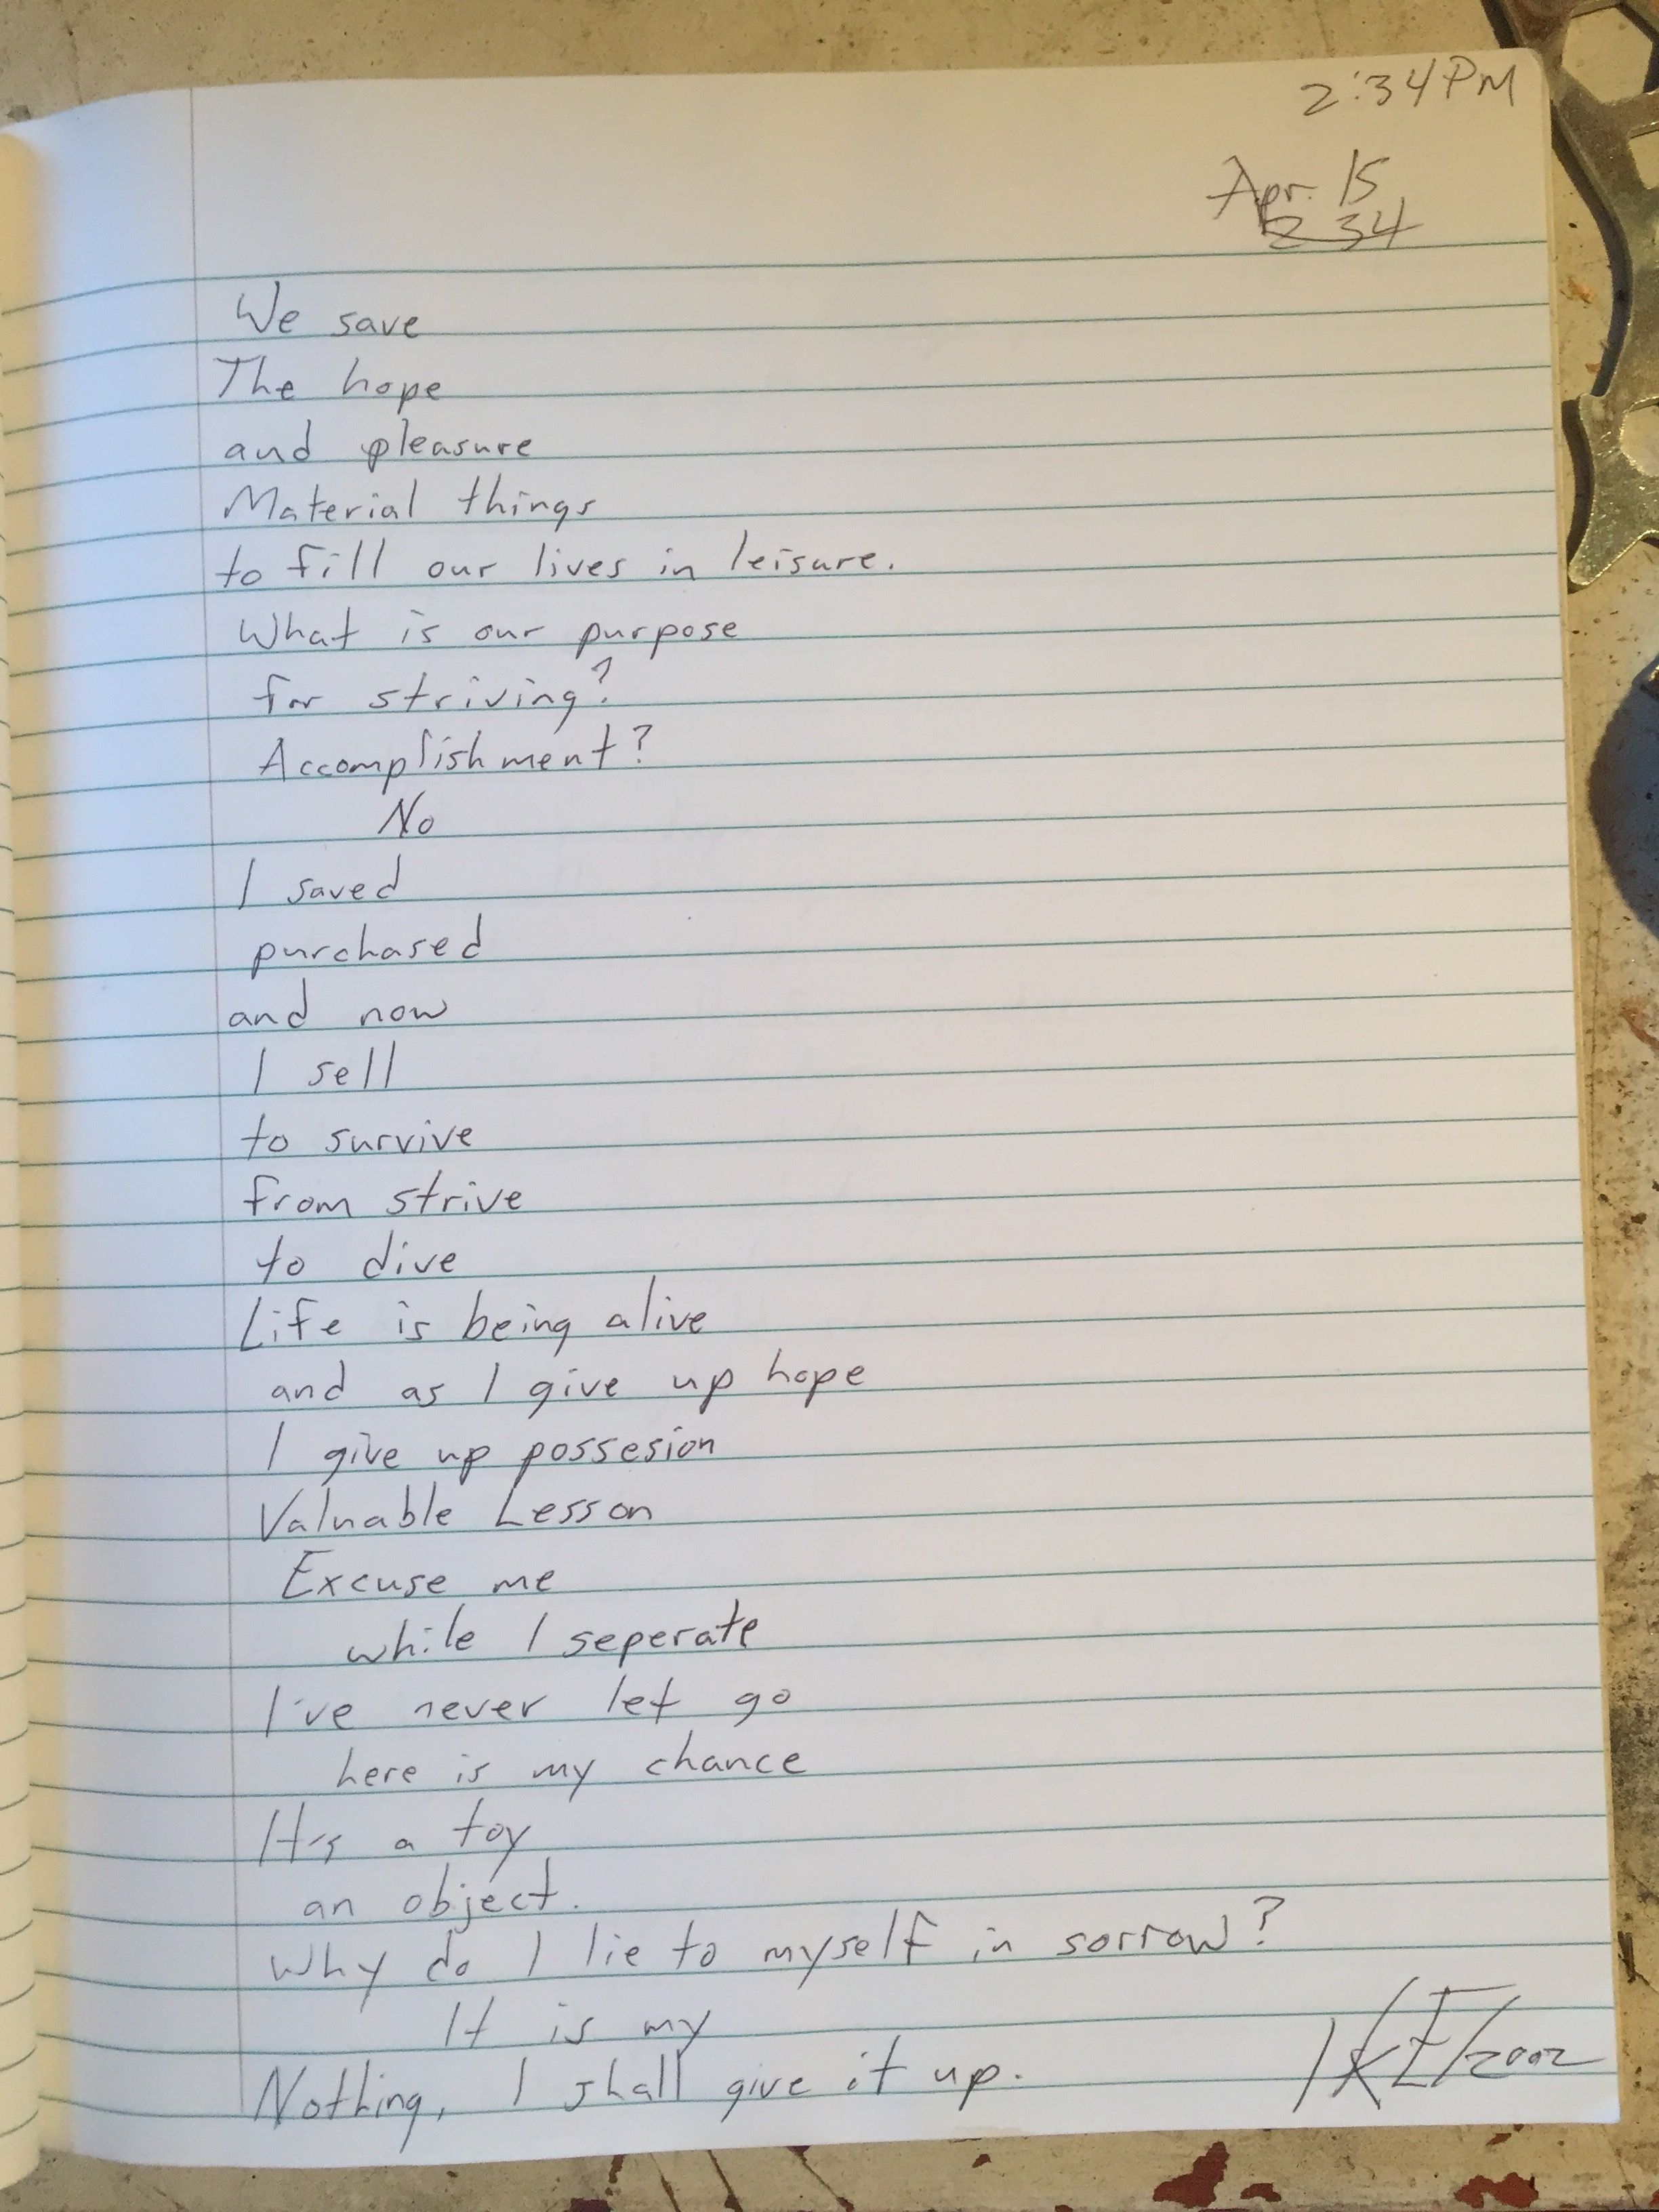 2:34 PM
Apr. 15
2 34
We save
The hope
and pleasure
Material things
to fill our lives in leisure.
What is our purpose
for striving?
Accomplishment?
No
I saved
purchased
and now
I sell
to survive
from strive
to dive
Life is being alive
and as I give up hope
I give up possesion
Valuable Lesson
Excuse me
while I seperate
I've never let go
here is my chance
It's a toy
an object.
Why do I lie to myself in sorrow?
It is my
Nothing, I shall give it up.
2002